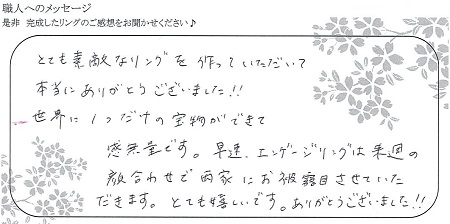 職人へのメッセージ
是非 完成したリングのご感想をお聞かせください♪
とても素敵なリングを作っていただいて
本当にありがとうございました!!
世界に1つだけの宝物ができて
感無量です。早速、エンゲージリングは来週の
顔合わせで両家にお披露目させていた
だきます。とても嬉しいです。ありがとうございました!!